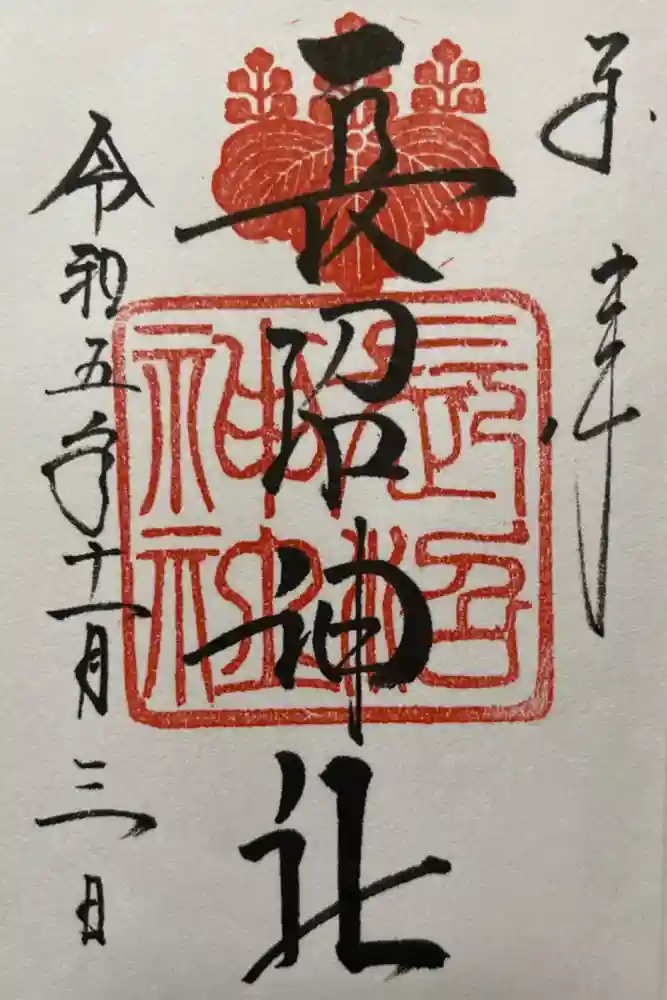 奉拝
長沼神社
令和五年十一月三日
長沼
神社